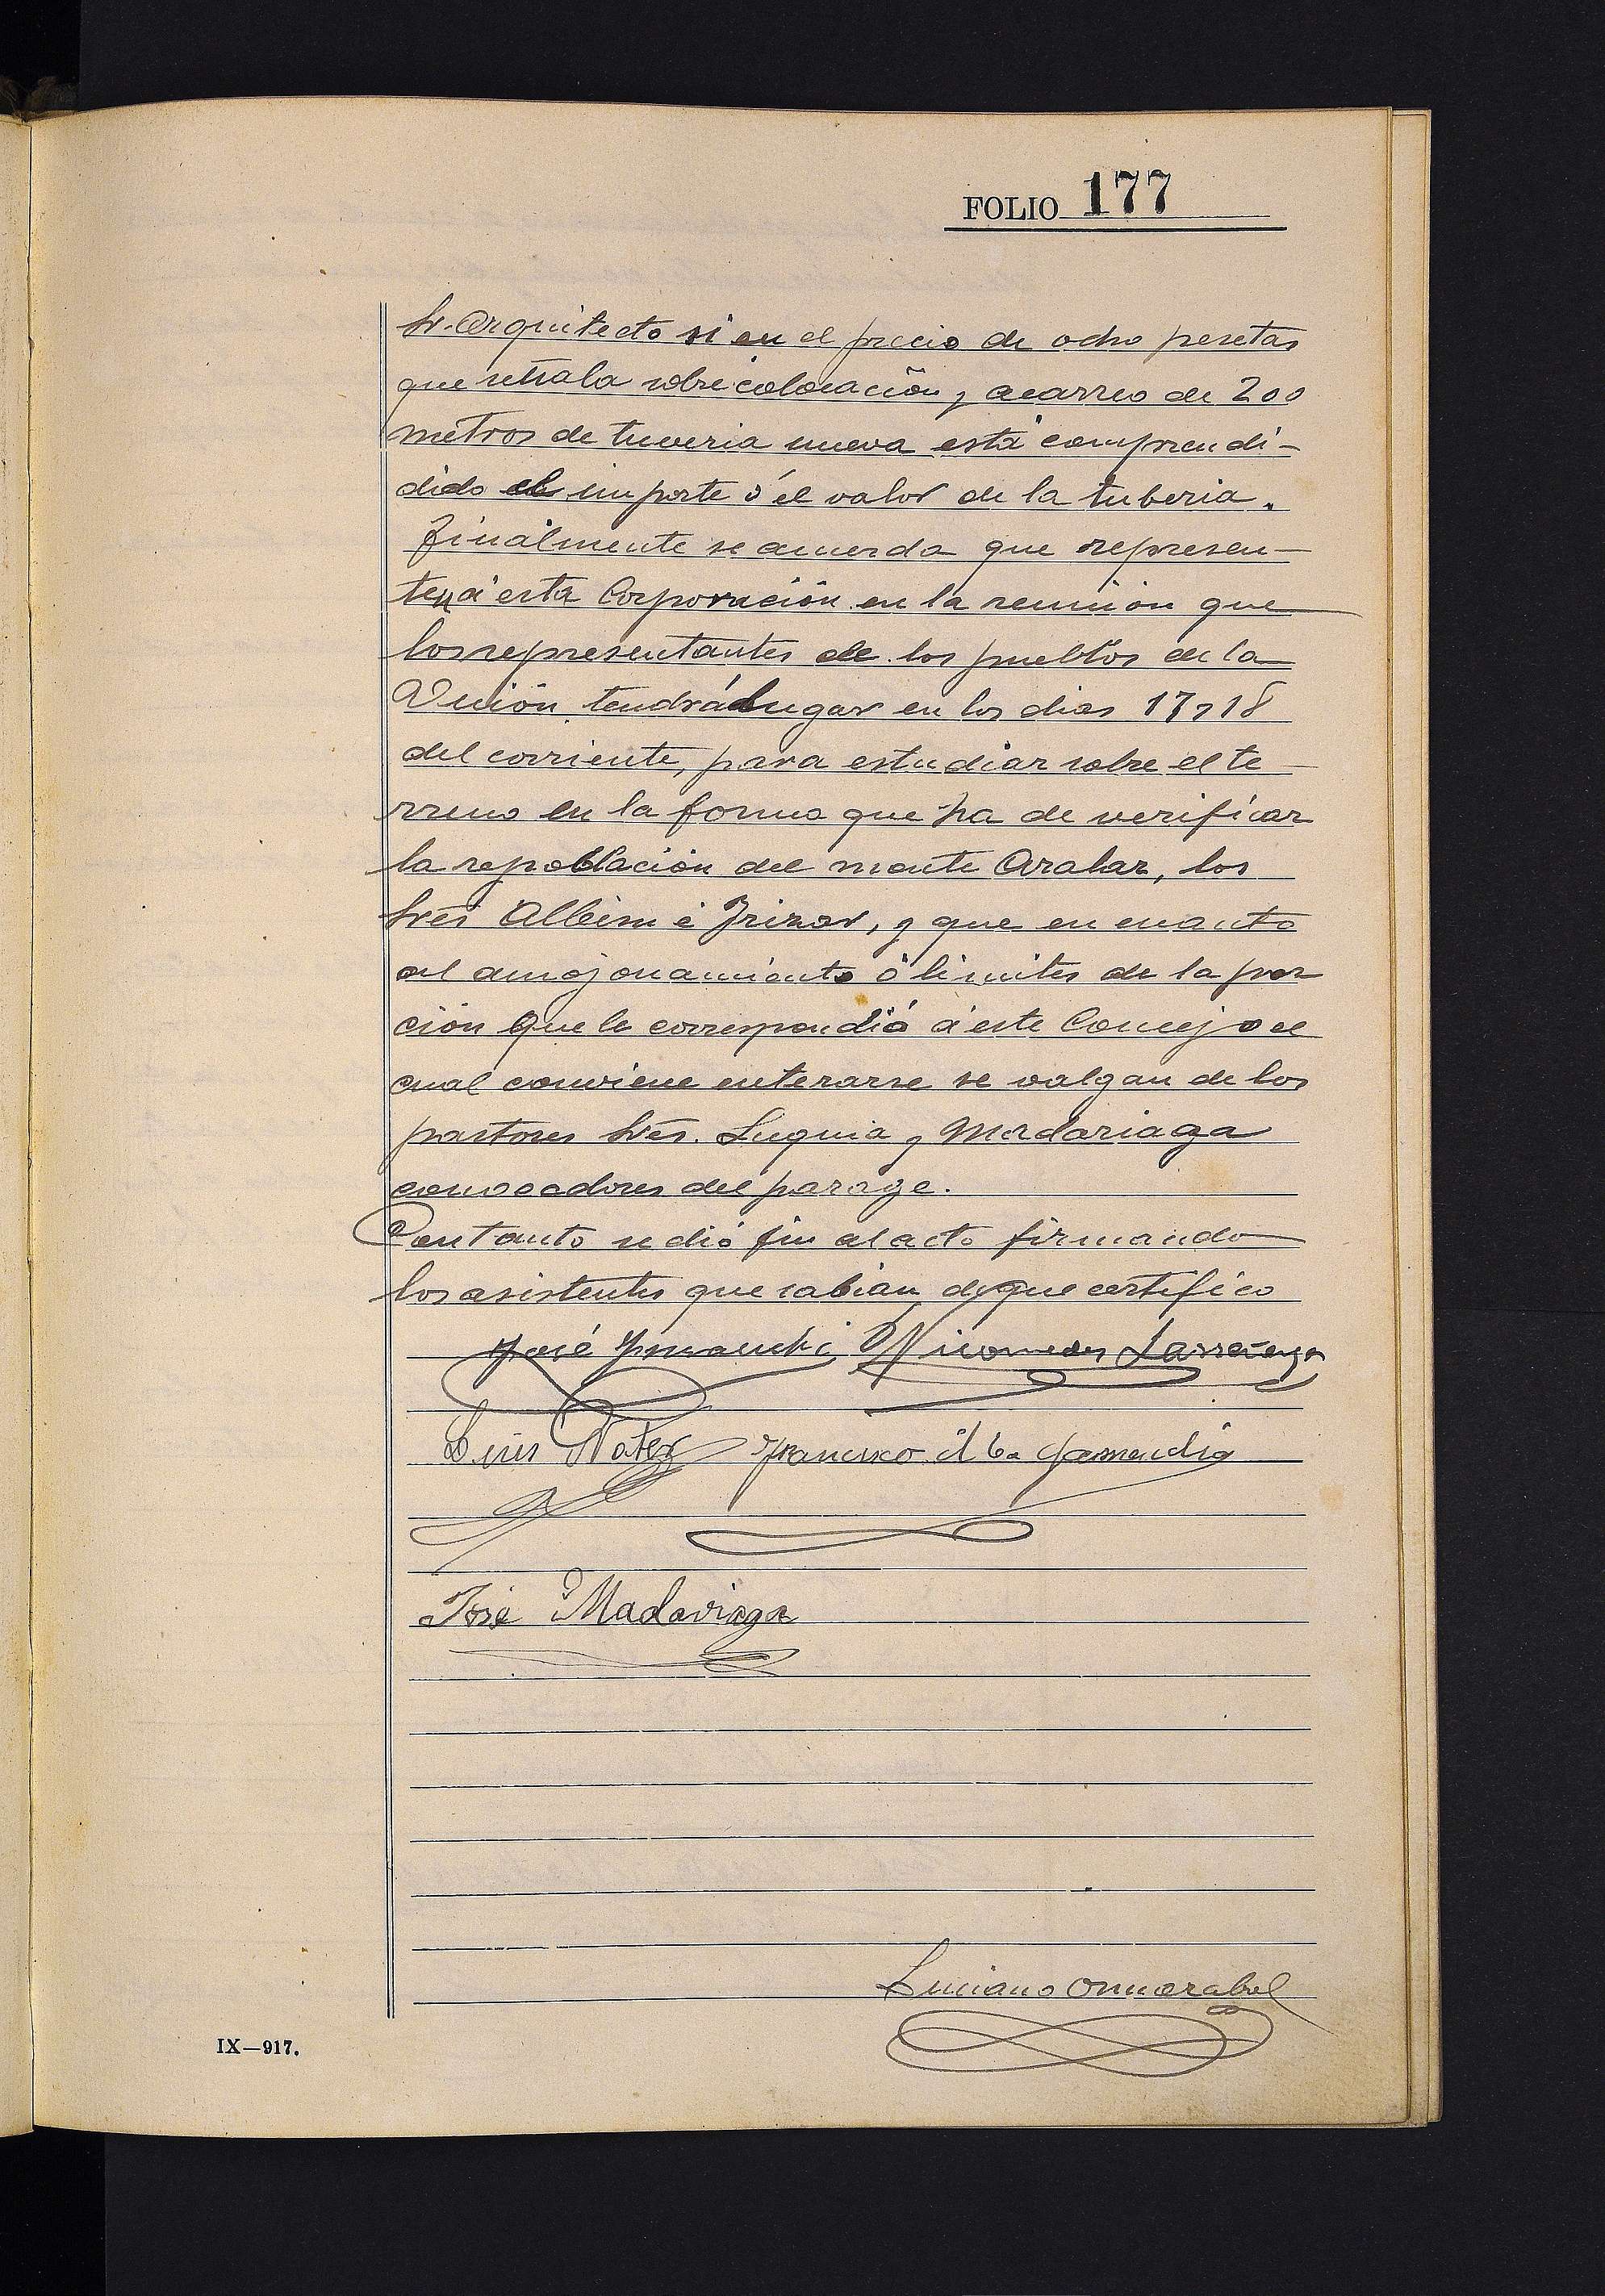 FOLIO 177
Sr. Arquitecto si en el precio de ocho pesetas
que señala sobre colocación y acarreo de 200
metros de tuveria nueva está comprendi-
dido el importe ó el valor de la tuberia.
Finalmente se acuerda que represen-
ten á esta Corporación en la reunión que
los representantes de los pueblos de la
Unión tendrá lugar en los dias 17 y 18
del corriente, para estudiar sobre el te-
rreno en la forma que ha de verificar
la repoblación del monte Aralar, los
Sres Albisu é Irizar, y que en cuanto
al amojonamiento ó limites de la por
ción que le correspondió á este Concejo el
cual conviene enterarse se valgan de los
pastores Sres. Luquia y Madariaga
conocedores del parage.
Con tanto se dió fin al acto firmando
los asistentes que sabian de que certifico
José Nicomedes Larrañaga
Luis Francisco Garmendia
José Madariaga
Luciano
IX—917.